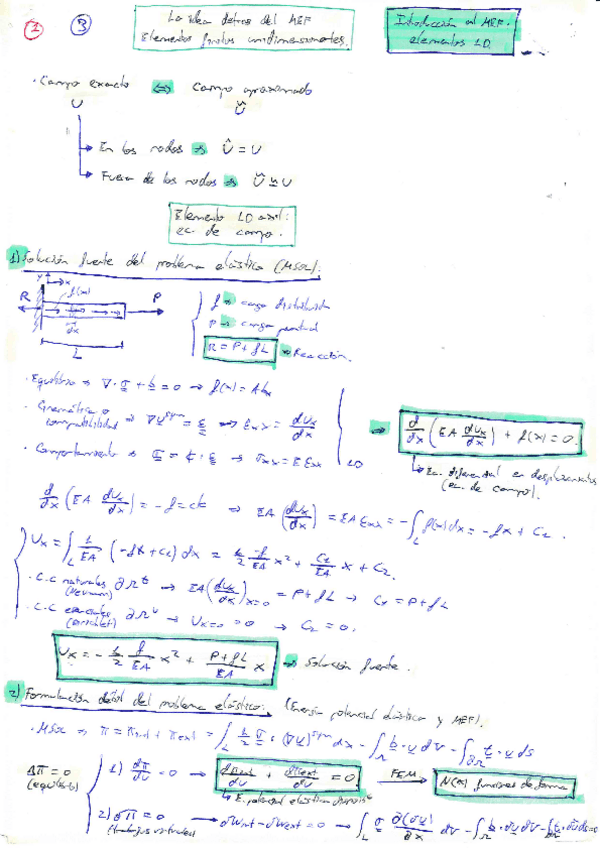 ① ③
La idea detrás del MEF
Elementos finitos unidimensionales.
Introducción al MEF.
elementos 1D.
· Campo exacto ⇔ Campo aproximado
U Û
En los nodos ⇒ Û = U
Fuera de los nodos ⇒ Û ≃ U
Elemento 1D axil:
ec. de campo.
1) Solución fuerte del problema elástico (MSOL).
y x
f(x)
R P
dx
L
f ⇒ carga distribuida
P ⇒ carga puntual
R = P + fL ⇒ Reacción.
· Equilibrio ⇒ ∇·σ + b = 0 → f(x) = Abx
· Cinemática o compatibilidad ⇒ ∇U^sym = ε ⇒ εxx = dUx/dx
· Comportamiento ⇒ σ = · ε → σxx = E εxx
1D
⇒ d/dx (EA dUx/dx) + f(x) = 0.
Ec. diferencial en desplazamientos
(ec. de campo).
d/dx (EA dUx/dx) = -f = cte ⇒ EA (dUx/dx) = EA εxx = -∫L f(x)dx = -fx + C1.
Ux = ∫L 1/EA (-fx + C1) dx = 1/2 -f/EA x² + C1/EA x + C2.
· C.C naturales (Neumann) → EA (dUx/dx)x=0 = P + fL → C1 = P + fL
· C.C esenciales (Dirichlet) → Ux=0 = 0 → C2 = 0.
Ux = - 1/2 f/EA x² + P+fL/EA x ⇒ Solución fuerte.
2) Formulación débil del problema elástico: (Energía potencial elástica y MEF).
· MSOL ⇒ π = πint + πext = ∫L 1/2 σ : (∇U)^sym dx - ∫ b · u dV - ∫ t · u ds
Δπ = 0
(equilibrio)
1) dπ/dU = 0 → dπint/dU + dπext/dU = 0 FEM → N(x) funciones de forma
E. potencial elástica
2) δπ = 0 → δWint - δWext = 0 → ∫L σ ∂(δu)/∂x dV - ∫ b · δu dV - ∫ t · δu ds = 0
(trabajos virtuales)